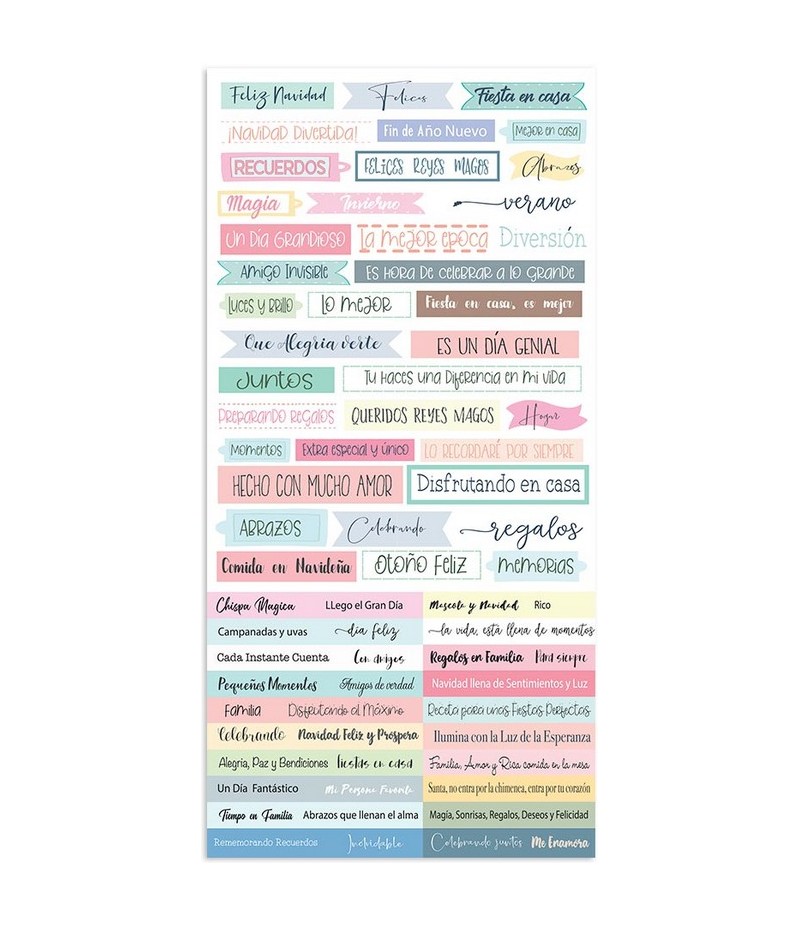 Feliz Navidad Felices Fiesta en casa
¡Navidad Divertida! Fin de Año Nuevo Mejor en casa
RECUERDOS FELICES REYES MAGOS Abrazos
Magia Invierno verano
Un Día Grandioso La mejor epoca Diversión
Amigo Invisible Es hora de celebrar a lo grande
Luces y Brillo Lo mejor Fiesta en casa, es mejor
Que Alegria verte ES UN DÍA GENIAL
Juntos Tu haces una diferencia en mi vida
Preparando regalos QUERIDOS REYES MAGOS Hogar
Momentos Extra especial y único LO RECORDARÉ POR SIEMPRE
HECHO CON MUCHO AMOR Disfrutando en casa
ABRAZOS Celebrando regalos
Comida en Navideña Otoño Feliz memorias
Chispa Magica LLego el Gran Día Mascota y Navidad Rico
Campanadas y uvas dia feliz la vida, está llena de momentos
Cada Instante Cuenta Con amigos Regalos en Familia Para siempre
Pequeños Momentos Amigos de verdad Navidad llena de Sentimientos y Luz
Familia Disfrutando al Máximo Receta para unas Fiestas Perfectas
Celebrando Navidad Feliz y Prospera Ilumina con la Luz de la Esperanza
Alegria, Paz y Bendiciones fiestas en casa Familia, Amor y Rica comida en la mesa
Un Día Fantástico Mi Persona Favorita Santa, no entra por la chimenea, entra por tu corazón
Tiempo en Familia Abrazos que llenan el alma Magía, Sonrisas, Regalos, Deseos y Felicidad
Rememorando Recuerdos Inolvidable Celebrando juntos Me Enamora